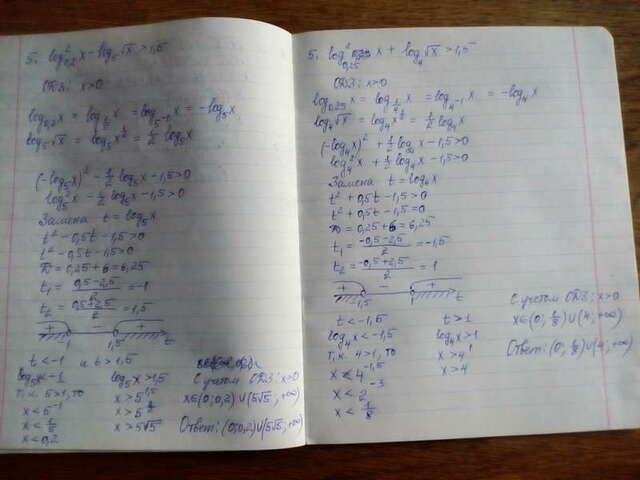 5. log²₀,₂ x - log₅ √x > 1,5
ОДЗ: x>0
log₀,₂ x = log_{1/5} x = log_{5⁻¹} x = -log₅ x
log₅ √x = log₅ x^{1/2} = 1/2 log₅ x
(-log₅ x)² - 1/2 log₅ x - 1,5 > 0
log₅² x - 1/2 log₅ x - 1,5 > 0
Замена t = log₅ x
t² - 0,5t - 1,5 > 0
t² - 0,5t - 1,5 = 0
D = 0,25 + 6 = 6,25
t₁ = (0,5-2,5)/2 = -1
t₂ = (0,5+2,5)/2 = 1,5
+ - +
-1 1,5 t
t < -1 и t > 1,5
log₅ x < -1 log₅ x > 1,5
т.к. 5>1, то x > 5^{1,5}
С учетом ОДЗ: x>0
x < 5⁻¹ x > 5^{3/2}
x∈(0; 0,2)∪(5√5; +∞)
x < 1/5 x > 5√5
x < 0,2
Ответ: (0; 0,2)∪(5√5; +∞)
5. log²₀,₂₅ x + log₄ √x > 1,5
ОДЗ: x>0
log₀,₂₅ x = log_{1/4} x = log_{4⁻¹} x = -log₄ x
log₄ √x = log₄ x^{1/2} = 1/2 log₄ x
(-log₄ x)² + 1/2 log₄ x - 1,5 > 0
log₄² x + 1/2 log₄ x - 1,5 > 0
Замена t = log₄ x
t² + 0,5t - 1,5 > 0
t² + 0,5t - 1,5 = 0
D = 0,25 + 6 = 6,25
t₁ = (-0,5-2,5)/2 = -1,5
t₂ = (-0,5+2,5)/2 = 1
+ - +
-1,5 1 t
t < -1,5 t > 1
log₄ x < -1,5 log₄ x > 1
т.к. 4>1, то x > 4¹
x < 4^{-1,5} x > 4
x < 2⁻³
x < 1/8
С учетом ОДЗ: x>0
x∈(0; 1/8)∪(4; +∞)
Ответ: (0; 1/8)∪(4; +∞)